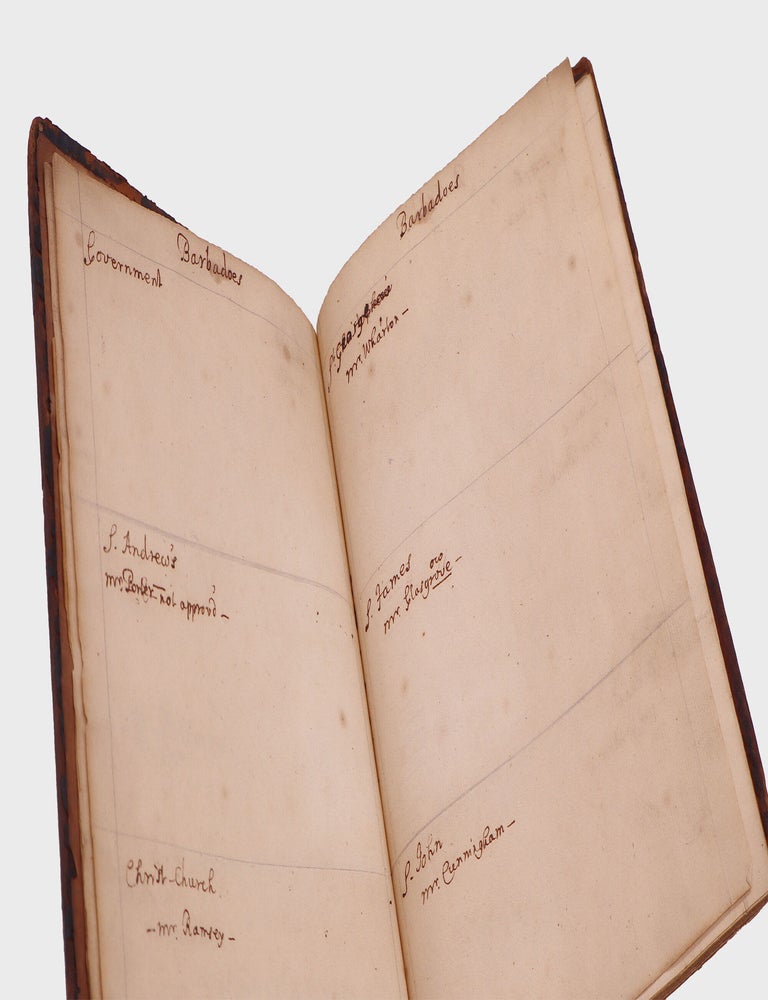 Barbadoes
Government
S. Andrew's
mr. Porter not approv'd –
Christ-Church
– mr. Ramsey –
Barbadoes
mr. Wharton –
S. James
mr. Glasgrove –
S. John
mr. Cunningham –